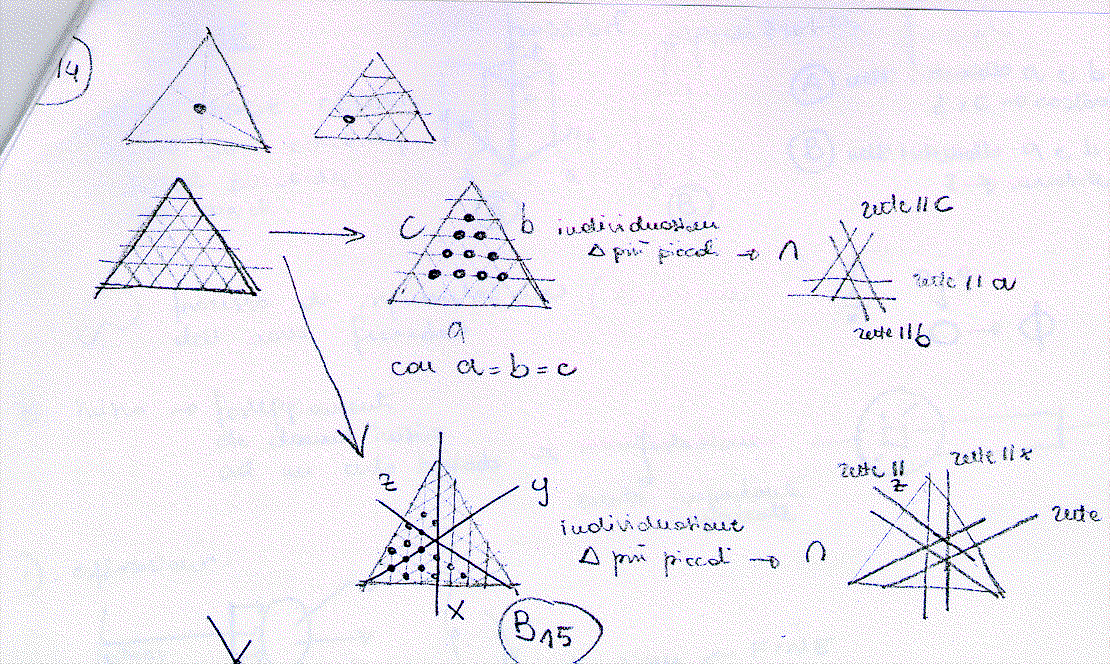 14
c
b
individuazioni
Δ più piccoli → ∩
rette // c
rette // a
rette // b
a
con a = b = c
z
y
x
individuazione
Δ più piccoli → ∩
rette // z
rette // x
rette
B15